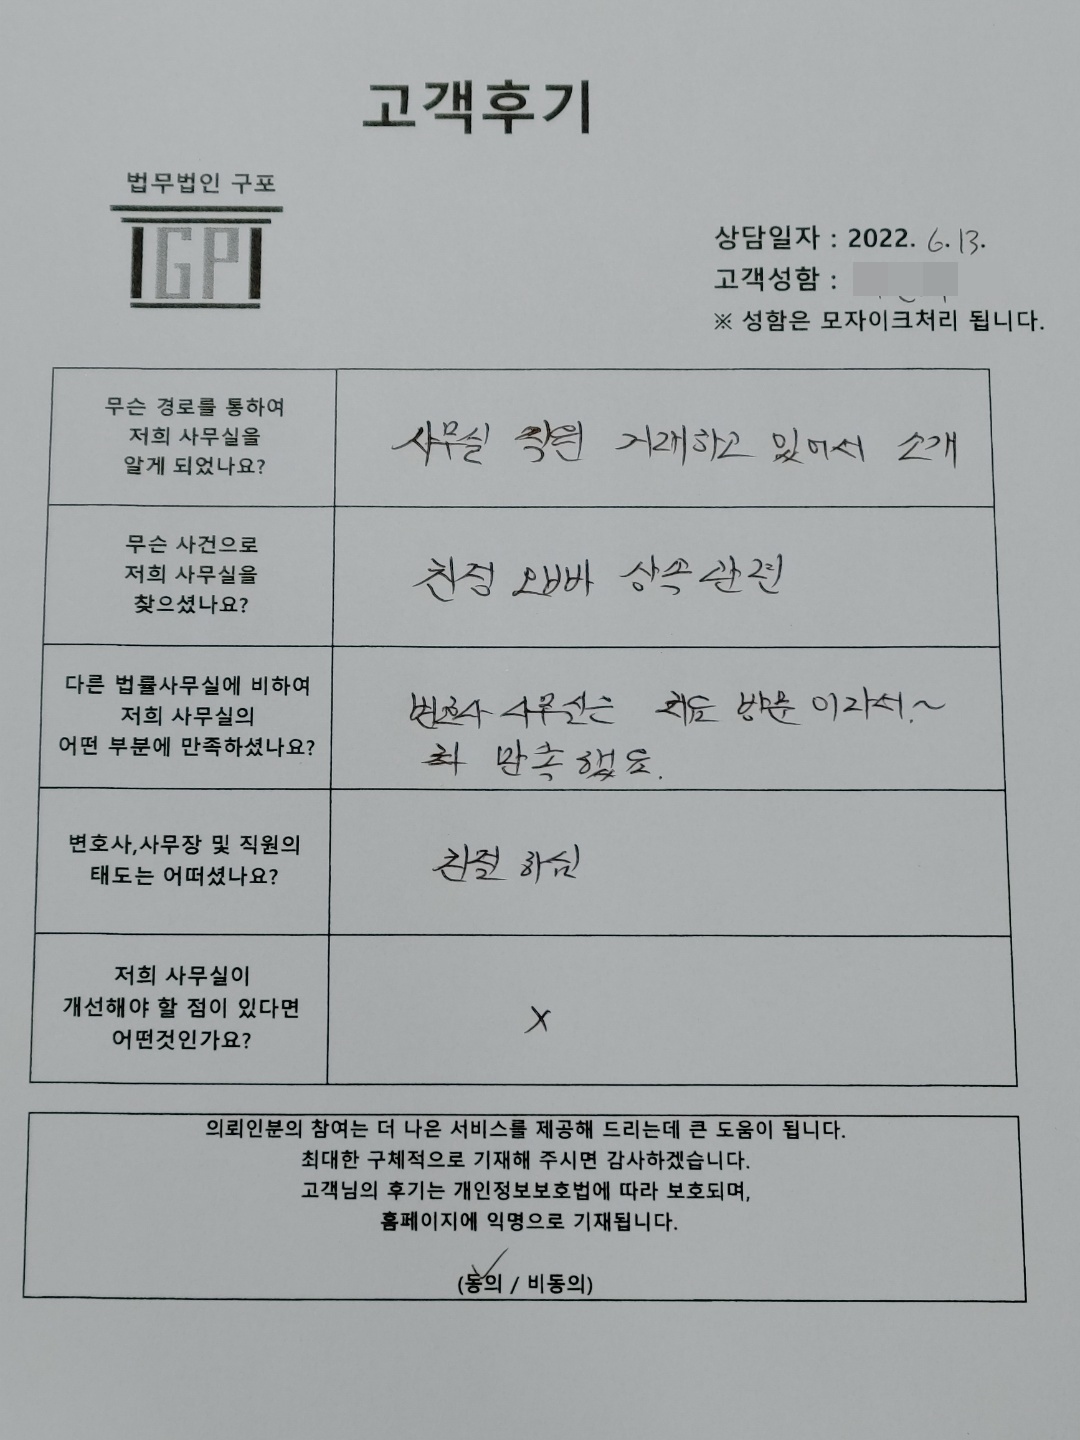 고객후기
법무법인 구포
GP
상담일자 : 2022. 6. 13.
고객성함 :
※ 성함은 모자이크처리 됩니다.
무슨 경로를 통하여
저희 사무실을
알게 되었나요?
사무실 직원 거래하고 있어서 소개
무슨 사건으로
저희 사무실을
찾으셨나요?
친정 오빠 상속관련
다른 법률사무실에 비하여
저희 사무실의
어떤 부분에 만족하셨나요?
변호사 사무실은 처음 방문 이라서.~
만족했요.
변호사,사무장 및 직원의
태도는 어떠셨나요?
친절 하심
저희 사무실이
개선해야 할 점이 있다면
어떤것인가요?
X
의뢰인분의 참여는 더 나은 서비스를 제공해 드리는데 큰 도움이 됩니다.
최대한 구체적으로 기재해 주시면 감사하겠습니다.
고객님의 후기는 개인정보보호법에 따라 보호되며,
홈페이지에 익명으로 기재됩니다.
(동의 / 비동의)